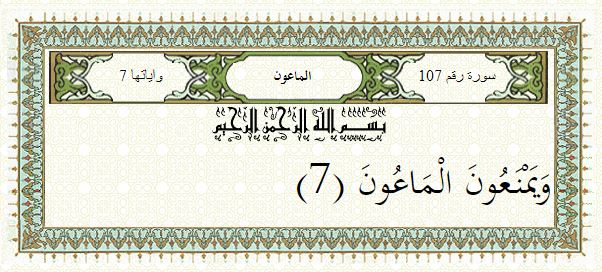 سورة رقم 107 الماعون وآياتها 7
بسم الله الرحمن الرحيم
وَيَمْنَعُونَ الْمَاعُونَ (7)